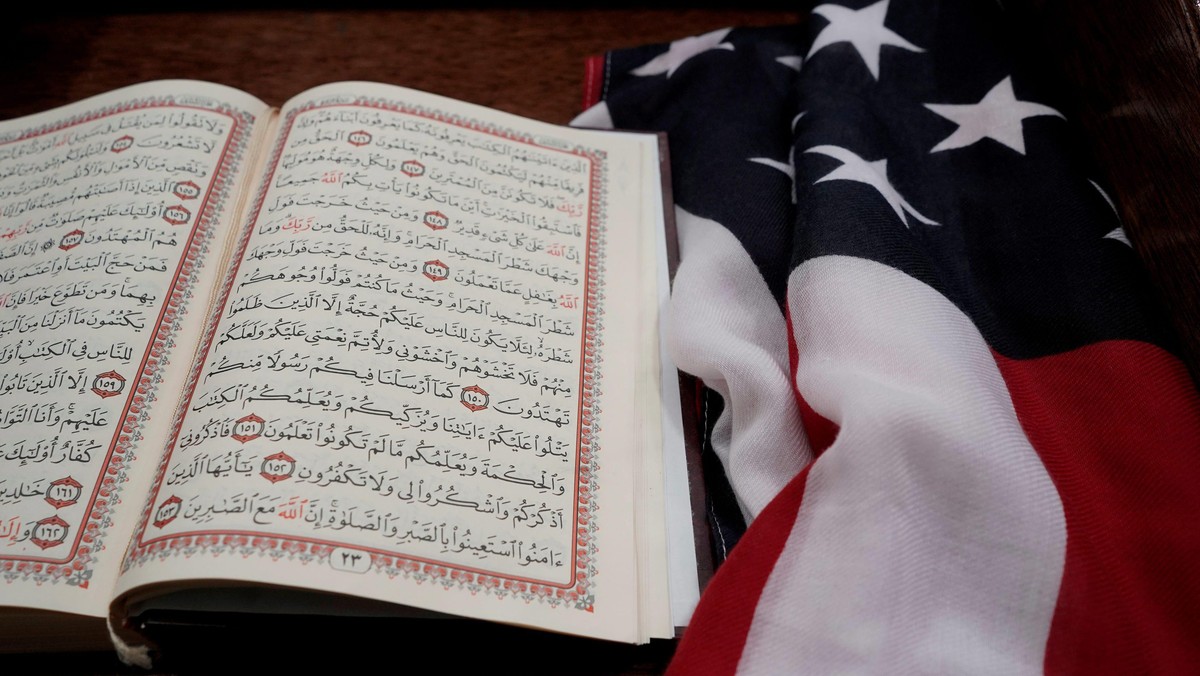 ٱلَّذِينَ ءَاتَيْنَٰهُمُ ٱلْكِتَٰبَ يَعْرِفُونَهُۥ كَمَا يَعْرِفُونَ أَبْنَآءَهُمْ وَإِنَّ
فَرِيقًا مِّنْهُمْ لَيَكْتُمُونَ ٱلْحَقَّ وَهُمْ يَعْلَمُونَ ١٤٦ ٱلْحَقُّ مِن
رَّبِّكَ فَلَا تَكُونَنَّ مِنَ ٱلْمُمْتَرِينَ ١٤٧ وَلِكُلٍّ وِجْهَةٌ هُوَ مُوَلِّيهَا
فَٱسْتَبِقُوا۟ ٱلْخَيْرَٰتِ أَيْنَ مَا تَكُونُوا۟ يَأْتِ بِكُمُ ٱللَّهُ جَمِيعًا
إِنَّ ٱللَّهَ عَلَىٰ كُلِّ شَىْءٍ قَدِيرٌ ١٤٨ وَمِنْ حَيْثُ خَرَجْتَ فَوَلِّ
وَجْهَكَ شَطْرَ ٱلْمَسْجِدِ ٱلْحَرَامِ وَإِنَّهُۥ لَلْحَقُّ مِن رَّبِّكَ وَمَا
ٱللَّهُ بِغَٰفِلٍ عَمَّا تَعْمَلُونَ ١٤٩ وَمِنْ حَيْثُ خَرَجْتَ فَوَلِّ وَجْهَكَ
شَطْرَ ٱلْمَسْجِدِ ٱلْحَرَامِ وَحَيْثُ مَا كُنتُمْ فَوَلُّوا۟ وُجُوهَكُمْ
شَطْرَهُۥ لِئَلَّا يَكُونَ لِلنَّاسِ عَلَيْكُمْ حُجَّةٌ إِلَّا ٱلَّذِينَ ظَلَمُوا۟
مِنْهُمْ فَلَا تَخْشَوْهُمْ وَٱخْشَوْنِى وَلِأُتِمَّ نِعْمَتِى عَلَيْكُمْ وَلَعَلَّكُمْ
تَهْتَدُونَ ١٥٠ كَمَآ أَرْسَلْنَا فِيكُمْ رَسُولًا مِّنكُمْ
يَتْلُوا۟ عَلَيْكُمْ ءَايَٰتِنَا وَيُزَكِّيكُمْ وَيُعَلِّمُكُمُ ٱلْكِتَٰبَ
وَٱلْحِكْمَةَ وَيُعَلِّمُكُم مَّا لَمْ تَكُونُوا۟ تَعْلَمُونَ ١٥١ فَٱذْكُرُونِىٓ
أَذْكُرْكُمْ وَٱشْكُرُوا۟ لِى وَلَا تَكْفُرُونِ ١٥٢ يَٰٓأَيُّهَا ٱلَّذِينَ
ءَامَنُوا۟ ٱسْتَعِينُوا۟ بِٱلصَّبْرِ وَٱلصَّلَوٰةِ إِنَّ ٱللَّهَ مَعَ ٱلصَّٰبِرِينَ ١٥٣
٢٣
وَلَا تَقُولُوا۟ لِمَن يُقْتَلُ فِى سَبِيلِ
لَّا تَشْعُرُونَ ١٥٤ وَلَنَبْلُوَنَّكُم بِشَىْءٍ
وَنَقْصٍ مِّنَ ٱلْأَمْوَٰلِ وَٱلْأَنفُسِ وَٱلثَّمَرَٰتِ
١٥٥ ٱلَّذِينَ إِذَآ أَصَٰبَتْهُم مُّصِيبَةٌ قَالُوٓا۟
١٥٦ أُو۟لَٰٓئِكَ عَلَيْهِمْ صَلَوَٰتٌ مِّن رَّبِّهِمْ
هُمُ ٱلْمُهْتَدُونَ ١٥٧ إِنَّ
فَمَنْ حَجَّ ٱلْبَيْتَ أَوِ ٱعْتَمَرَ فَلَا
بِهِمَا وَمَن تَطَوَّعَ خَيْرًا فَإِنَّ
يَكْتُمُونَ مَآ أَنزَلْنَا مِنَ
لِلنَّاسِ فِى ٱلْكِتَٰبِ
١٥٩ إِلَّا ٱلَّذِينَ تَابُوا۟
عَلَيْهِمْ وَأَنَا
كُفَّارٌ أُو۟لَٰٓئِكَ
١٦١ خَٰلِدِينَ
١٦٢